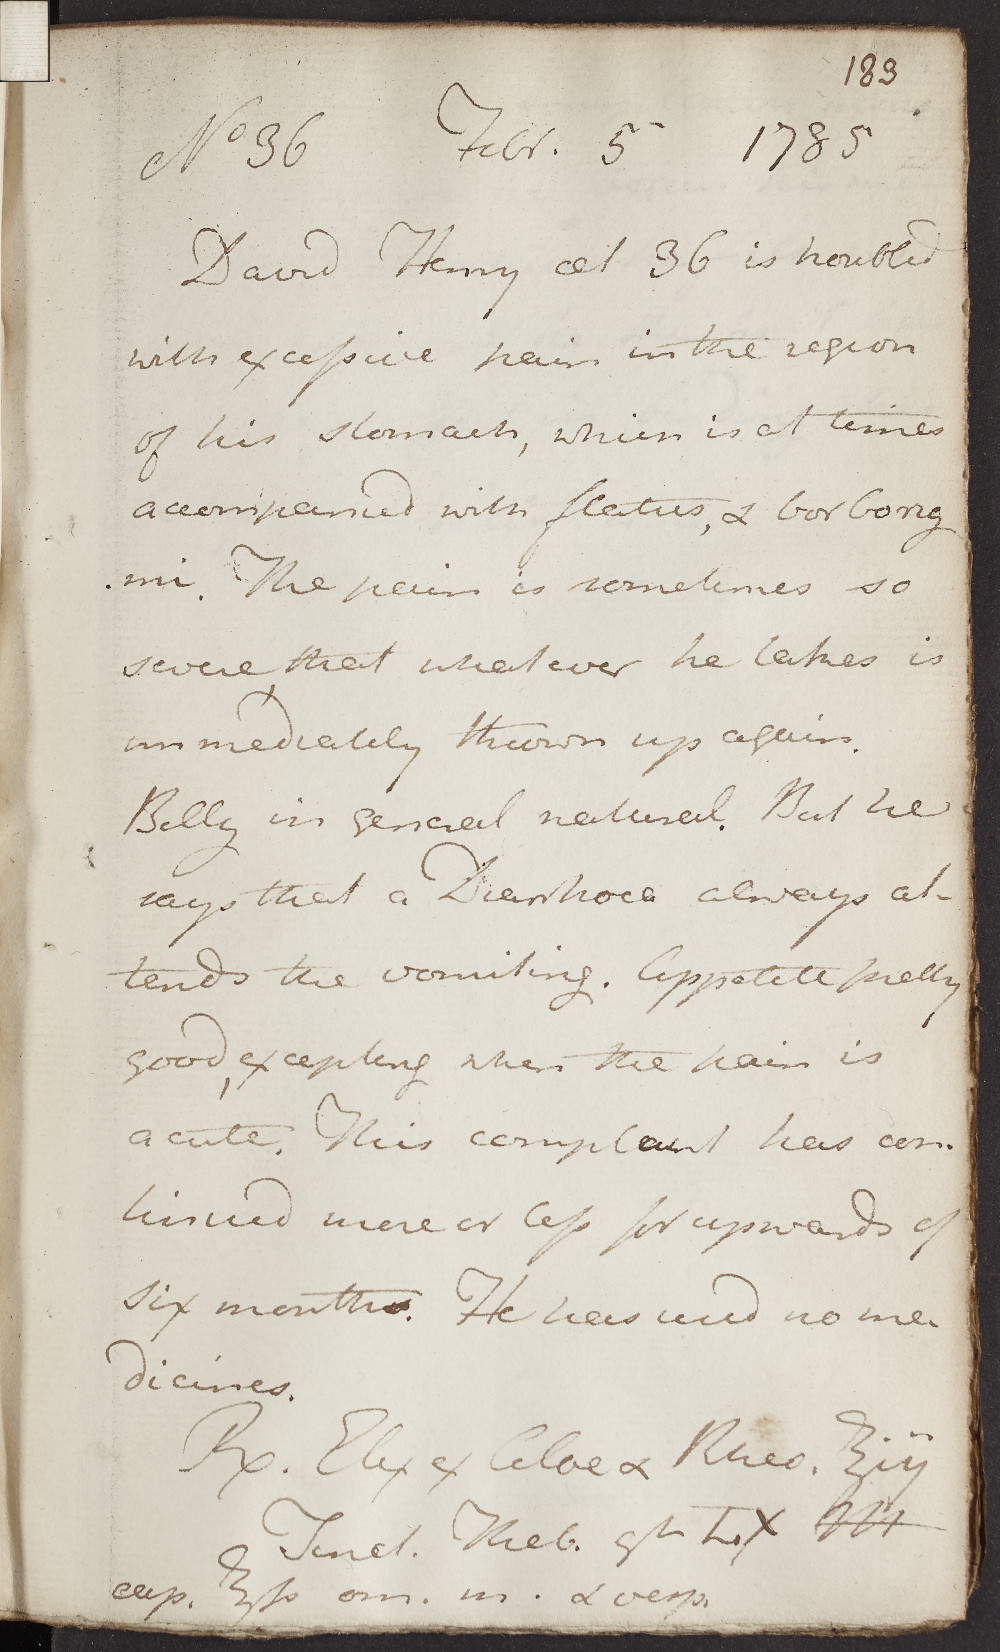 183
No 36 Febr. 5 1785
David Henry æt 36 is troubled
with excessive pain in the region
of his stomach, which is at times
accompanied with flatus, & borboryg
-mi. The pain is sometimes so
severe, that whatever he takes is
immediately thrown up again.
Belly in general natural. But he
says that a Diarrhoea always at-
tends the vomiting. Appetite pretty
good, excepting when the pain is
acute. This complaint has con-
tinued more or less for upwards of
six months. He has used no me-
dicines.
Rx. Elix ex Aloe & Rheo. ℥iij
Tinct. Theb. gtt LX
cap. ℥ss om. m. & vesp.